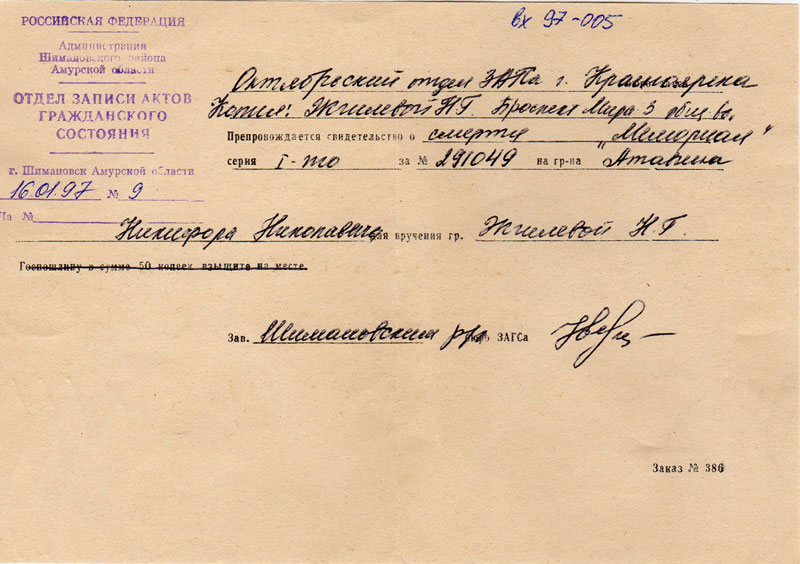 вх 97-005
РОССИЙСКАЯ ФЕДЕРАЦИЯ
Администрация
Шимановского района
Амурской области
ОТДЕЛ ЗАПИСИ АКТОВ
ГРАЖДАНСКОГО
СОСТОЯНИЯ
г. Шимановск Амурской области
16.01.97 № 9
На №
Октябрьский отдел ЗАГСа г. Красноярска
Копия: Жгилевой Н.Г. Проспект Мира 3 общ-во
Препровождается свидетельство о смерти "Мемориал"
серия I-то за № 291049 на гр-на Атавина
Никифора Николаевича для вручения гр. Жгилевой Н.Г.
Госпошлину в сумме 50 копеек взыщите на месте.
Зав. Шимановским бюро ЗАГСа
Заказ № 386